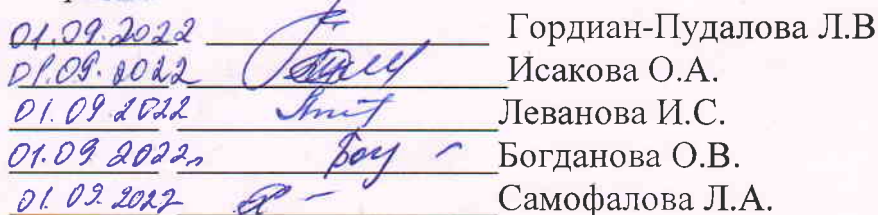 01.09.2022 Гордиан-Пудалова Л.В
01.09.2022 Исакова О.А.
01.09 2022 Леванова И.С.
01.09 2022г Богданова О.В.
01.09.2022 Самофалова Л.А.